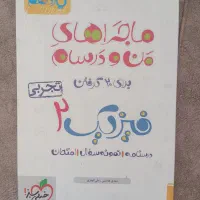 ماجراهای
من و درسام
برای ۲۰ گرفتن
تجربی
فیزیک ۲
درسنامه | نمونه سوال | امتحان
خیلی سبز